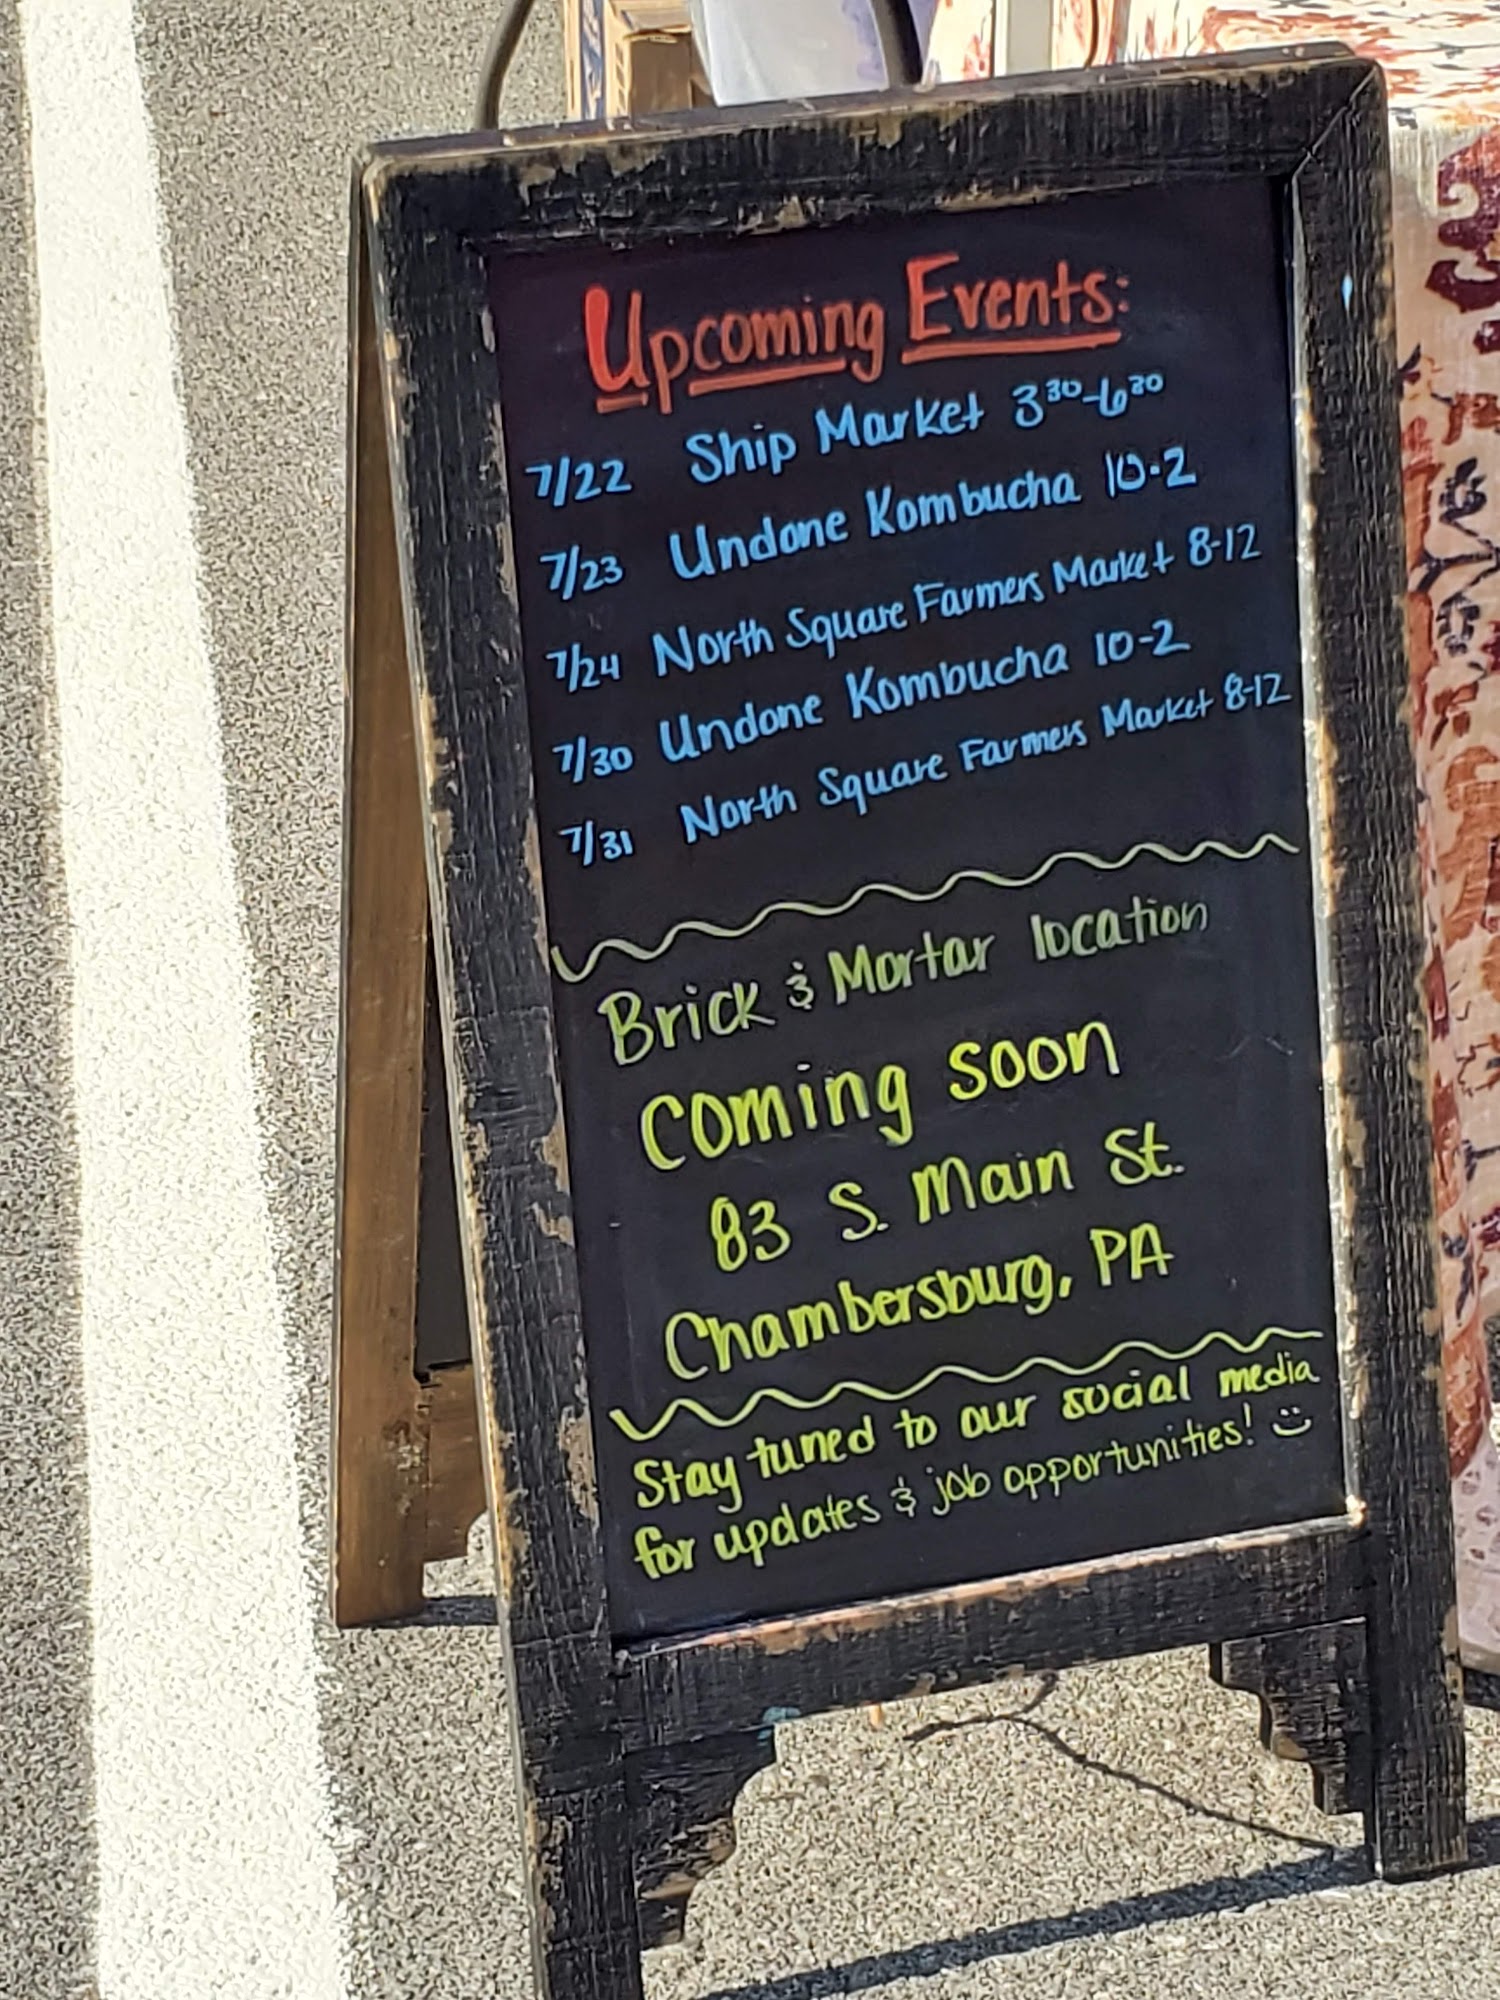 Upcoming Events:
7/22 Ship Market 3³⁰-6³⁰
7/23 Undone Kombucha 10-2
7/24 North Square Farmers Market 8-12
7/30 Undone Kombucha 10-2
7/31 North Square Farmers Market 8-12
Brick & Mortar location
Coming soon
83 S. Main St.
Chambersburg, PA
Stay tuned to our social media
for updates & job opportunities! :)